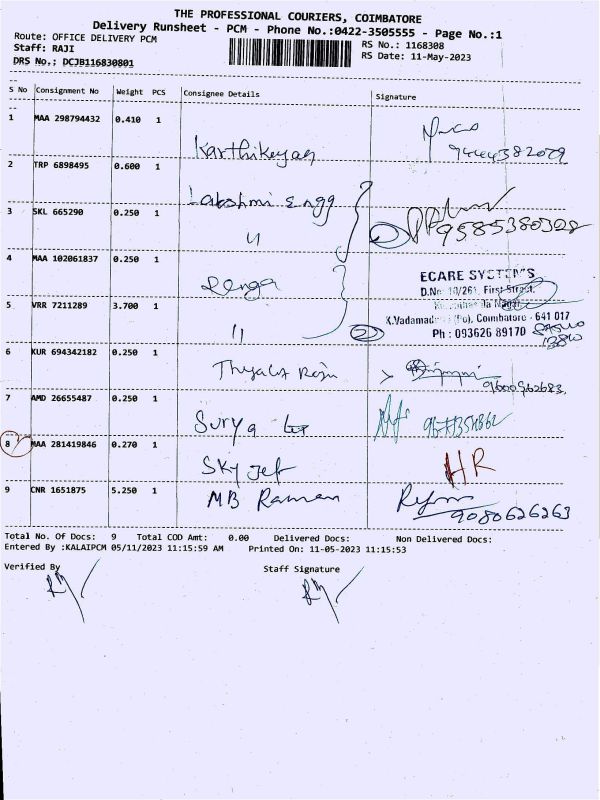 THE PROFESSIONAL COURIERS, COIMBATORE
Delivery Runsheet - PCM - Phone No.:0422-3505555 - Page No.:1
Route: OFFICE DELIVERY PCM
RS No.: 1168308
Staff: RAJI
RS Date: 11-May-2023
DRS No.; DCJB116830801
S No Consignment No Weight PCS Consignee Details Signature
1 MAA 298794432 0.410 1 Karthikeyan
9444382079
2 TRP 6898495 0.600 1 Lakshmi Engg
3 SKL 665290 0.250 1 〃 2 9585380308
4 MAA 102061837 0.250 1 Renga
ECARE SYSTEMS
D.No: 10/261, First Street,
Nagar,
K.Vadamadurai (Po), Coimbatore - 641 017
5 VRR 7211289 3.700 1 〃 2 Ph : 093626 89170
6 KUR 694342182 0.250 1 Raju
9600962683
7 AMD 26655487 0.250 1 Surya
8 MAA 281419846 0.270 1 Sky Jet HR
9 CNR 1651875 5.250 1 MB Raman
9080626263
Total No. Of Docs: 9 Total COD Amt: 0.00 Delivered Docs: Non Delivered Docs:
Entered By :KALAIPCM 05/11/2023 11:15:59 AM Printed On: 11-05-2023 11:15:53
Verified By Staff Signature